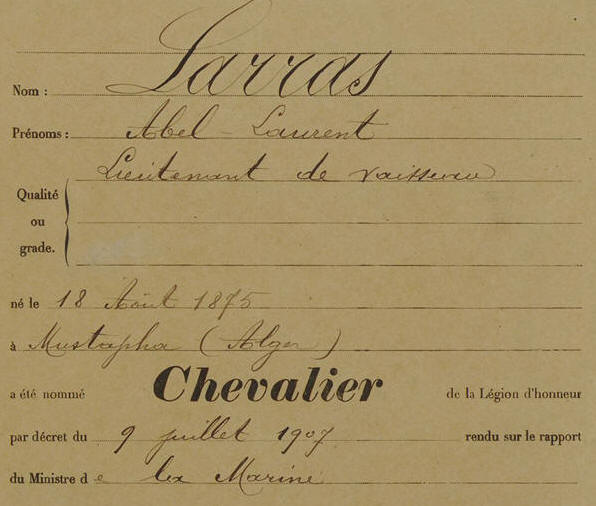 Nom : Larras
Prénoms : Abel-Laurent
Lieutenant de vaisseau
Qualité
ou
grade.
né le 18 Août 1875
à Mustapha (Alger)
a été nommé Chevalier de la Légion d'honneur
par décret du 9 juillet 1907 rendu sur le rapport
du Ministre de la Marine